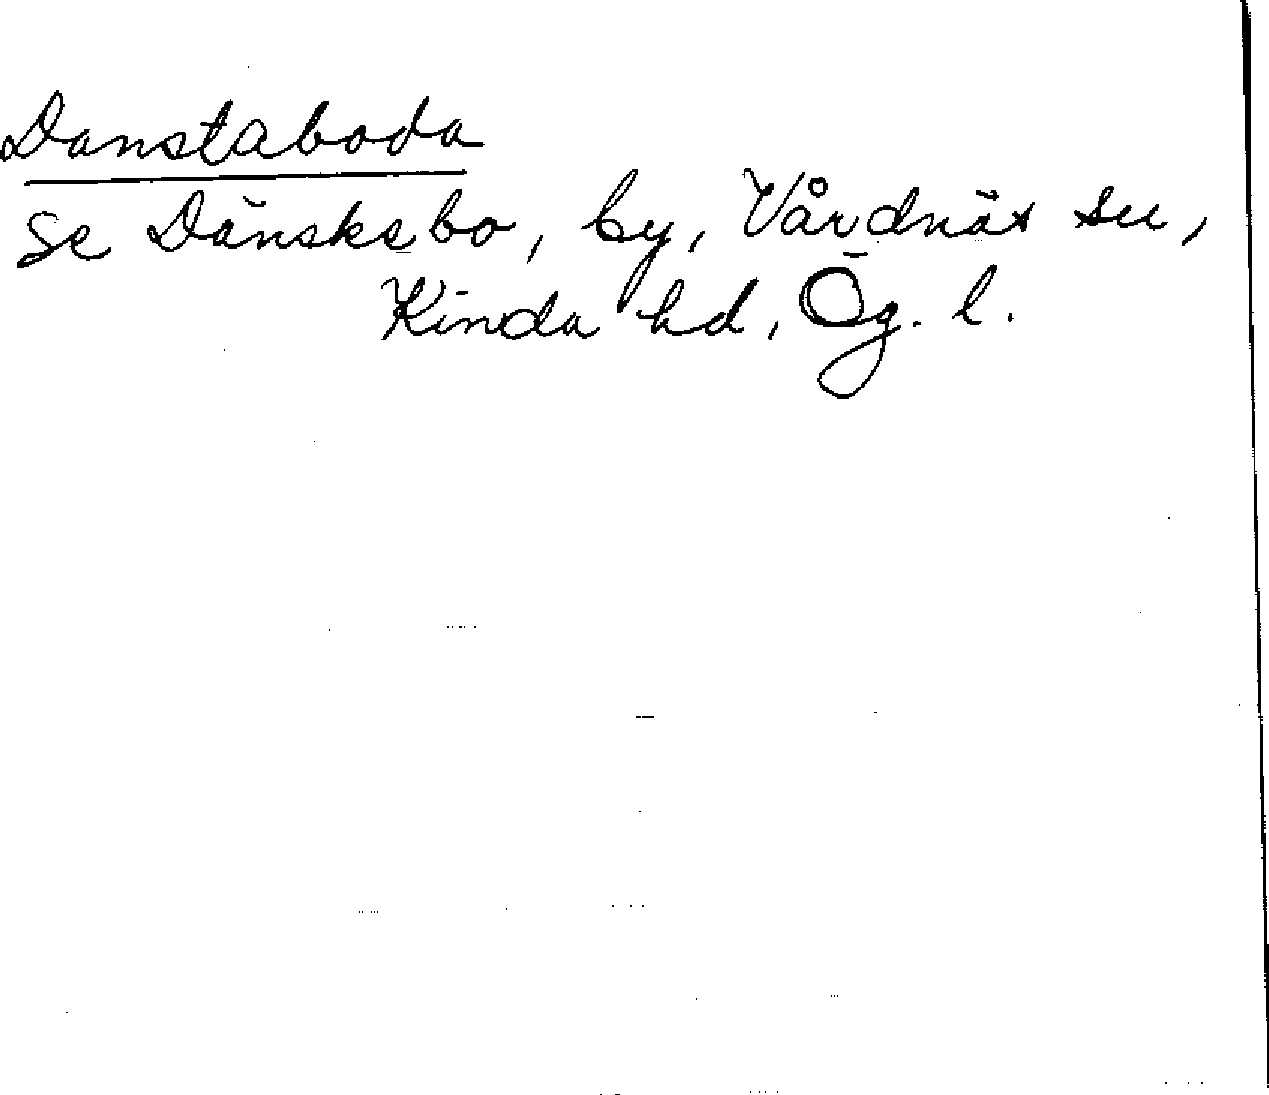 Danstaboda
se Dänskebo, by, Vårdnäs sn,
Kinda hd, Ög. l.